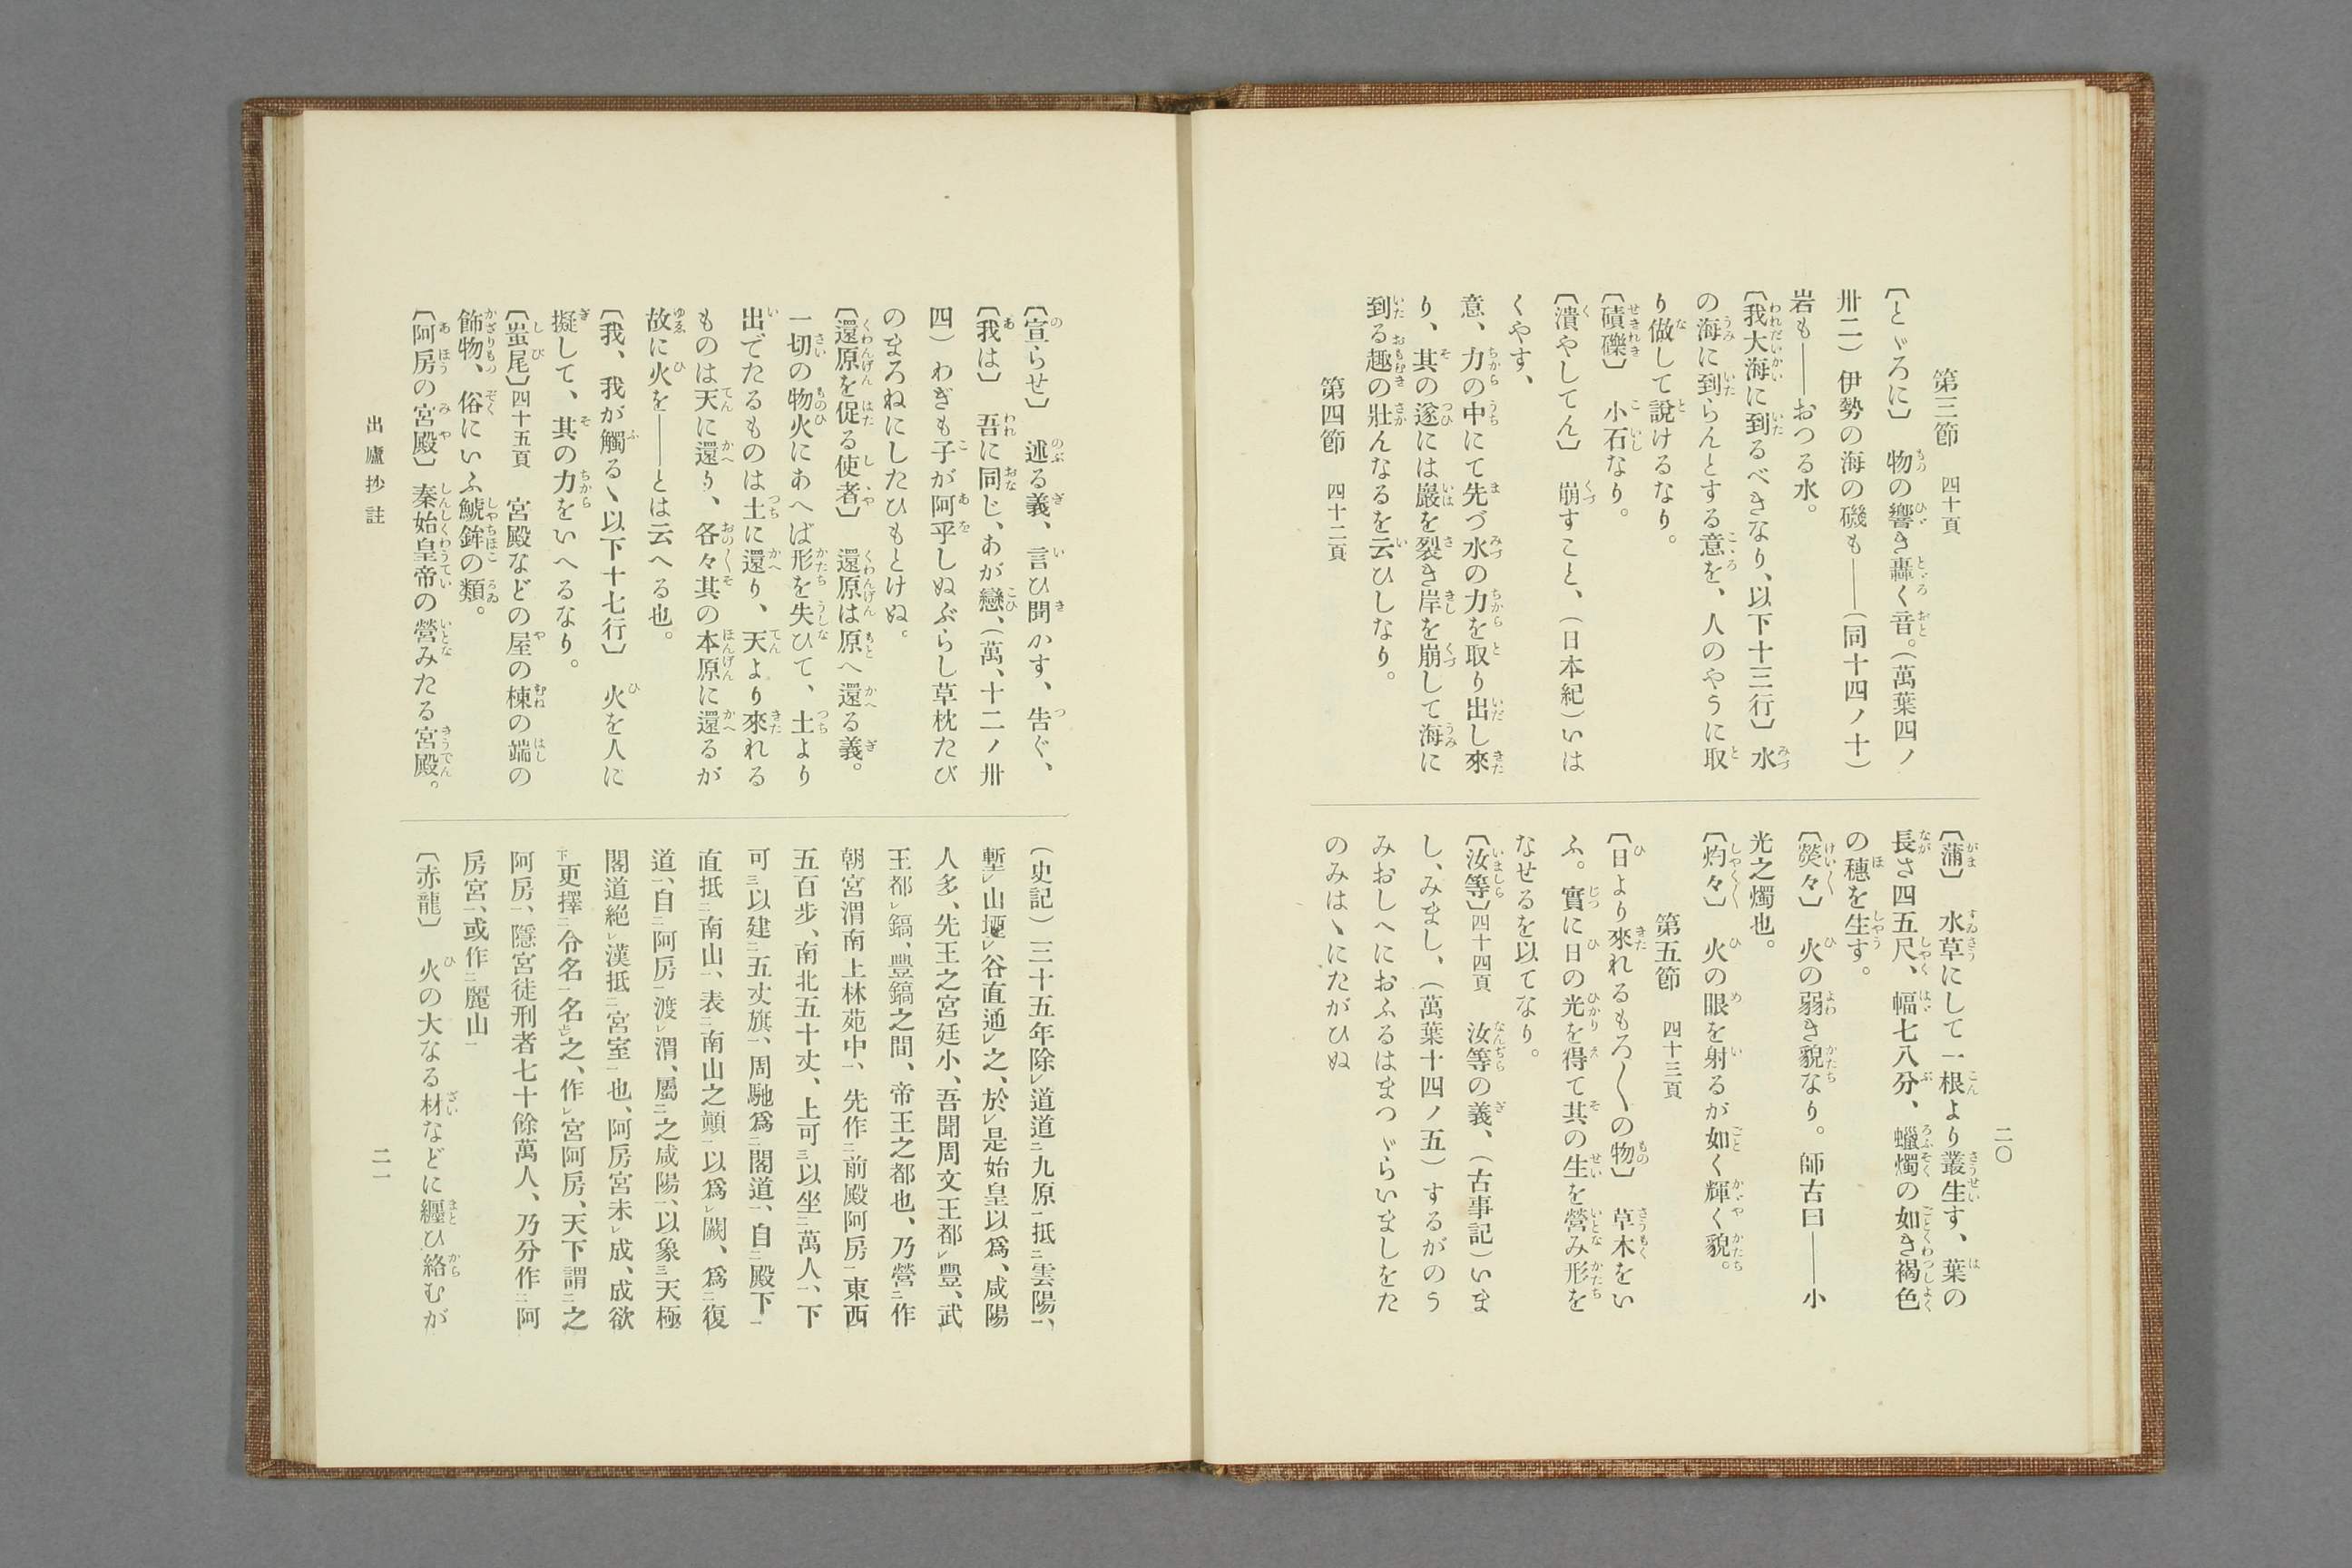 第三節　四十頁
〔とゞろに〕　物の響き轟く音。（萬葉四ノ
卅二）伊勢の海の磯も――（同十四ノ十）
岩も――おつる水。
〔我大海に到るべきなり、以下十三行〕　水
の海に到らんとする意を、人のやうに取
り做して說けるなり。
〔磧礫〕　小石なり。
〔潰やしてん〕　崩すこと、（日本紀）いは
くやす、
意、力の中にて先づ水の力を取り出し來
り、其の遂には巖を裂き岸を崩して海に
到る趣の壯んなるを云ひしなり。
第四節　四十二頁
〔蒲〕　水草にして一根より叢生す、葉の
長さ四五尺、幅七八分、蠟燭の如き褐色
の穗を生す。
〔熒々〕　火の弱き貌なり。師古曰――小
光之燭也。
〔灼々〕　火の眼を射るが如く輝く貌。
第五節　四十三頁
〔日より來れるもろ〱の物〕　草木をい
ふ。實に日の光を得て其の生を營み形を
なせるを以てなり。
〔汝等〕四十四頁　汝等の義、（古事記）いま
し、みまし、（萬葉十四ノ五）するがのう
みおしへにおふるはまつゞらいましをた
のみはゝにたがひぬ
二〇
〔宣らせ〕　述る義、言ひ聞かす、告ぐ、
〔我は〕　吾に同じ、あが戀、（萬、十二ノ卅
四）わぎも子が阿乎しぬぶらし草枕たび
のまろねにしたひもとけぬ。
〔還原を促る使者〕　還原は原へ還る義。
一切の物火にあへば形を失ひて、土より
出でたるものは土に還り、天より來れる
ものは天に還り、各々其の本原に還るが
故に火を――とは云へる也。
〔我、我が觸るゝ以下十七行〕　火を人に
擬して、其の力をいへるなり。
〔蚩尾〕四十五頁　宮殿などの屋の棟の端の
飾物、俗にいふ鯱鉾の類。
〔阿房の宮殿〕秦始皇帝の營みたる宮殿。
（史記）三十五年除レ道道二九原一抵二雲陽一、
塹レ山堙レ谷直通レ之、於レ是始皇以爲、咸陽
人多、先王之宮廷小、吾聞周文王都レ豐、武
王都レ鎬、豐鎬之間、帝王之都也、乃營二作
朝宮渭南上林苑中一、先作二前殿阿房一東西
五百步、南北五十丈、上可三以坐二萬人一、下
可三以建二五丈旗一、周馳爲二閣道一、自二殿下一
直抵二南山一、表二南山之顚一以爲レ闕、爲二復
道一、自二阿房一渡レ渭、屬二之咸陽一、以象三天極
閣道絕レ漢抵二宮室一也、阿房宮未レ成、成欲
下更擇二令名一名上レ之、作レ宮阿房、天下謂二之
阿房一、隱宮徒刑者七十餘萬人、乃分作二阿
房宮一、或作二麗山一
〔赤龍〕　火の大なる材などに纒ひ絡むが
出廬抄註
二一